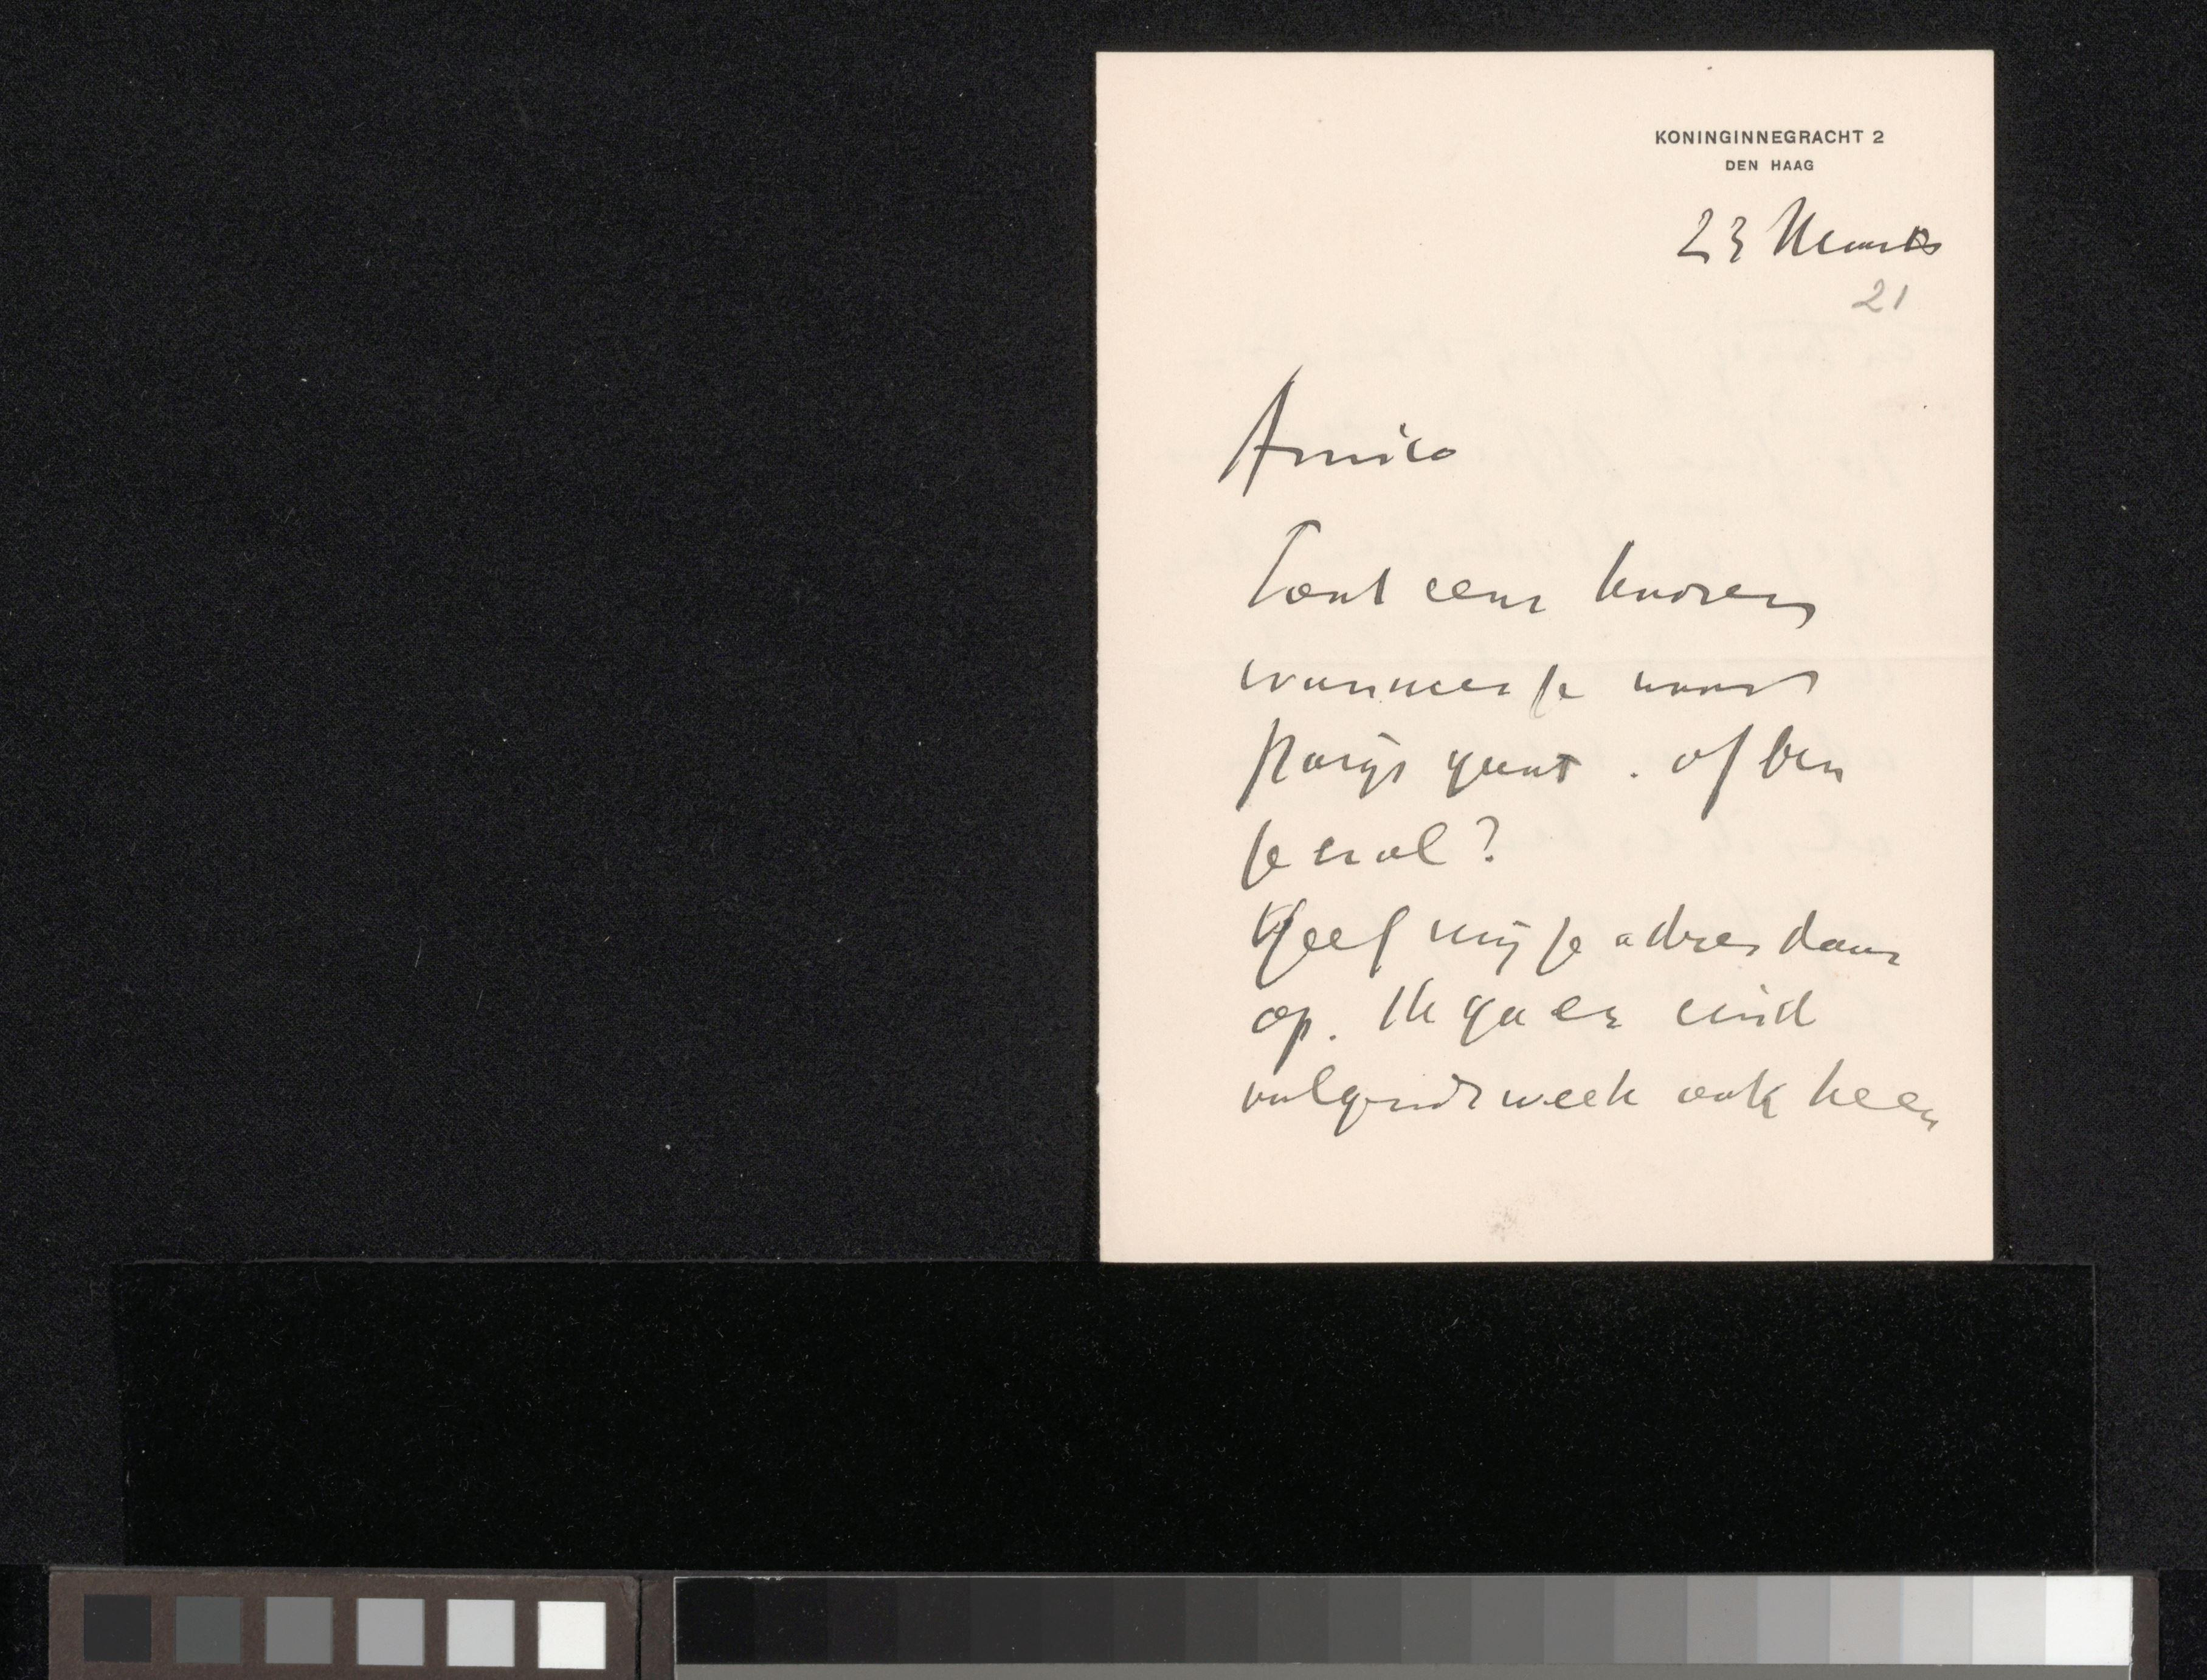 KONINGINNEGRACHT 2
DEN HAAG
23 Maart
21
Amico
Laat eens hooren
wanneer je naar
Parijs gaat. of ben
je er al?
Geef mij je adres dan
op. Ik ga er eind
volgende week ook heen